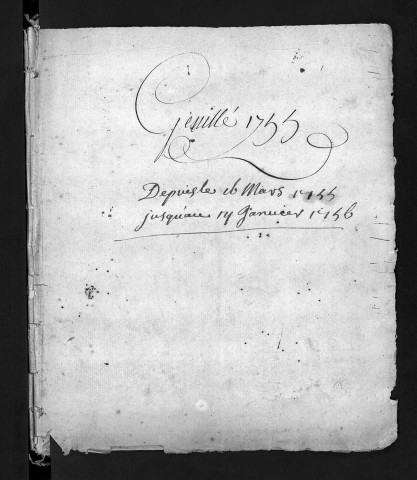 Genillé 1755
Depuis le 16 Mars 1755
jusqu'au 14 Janvier 1756